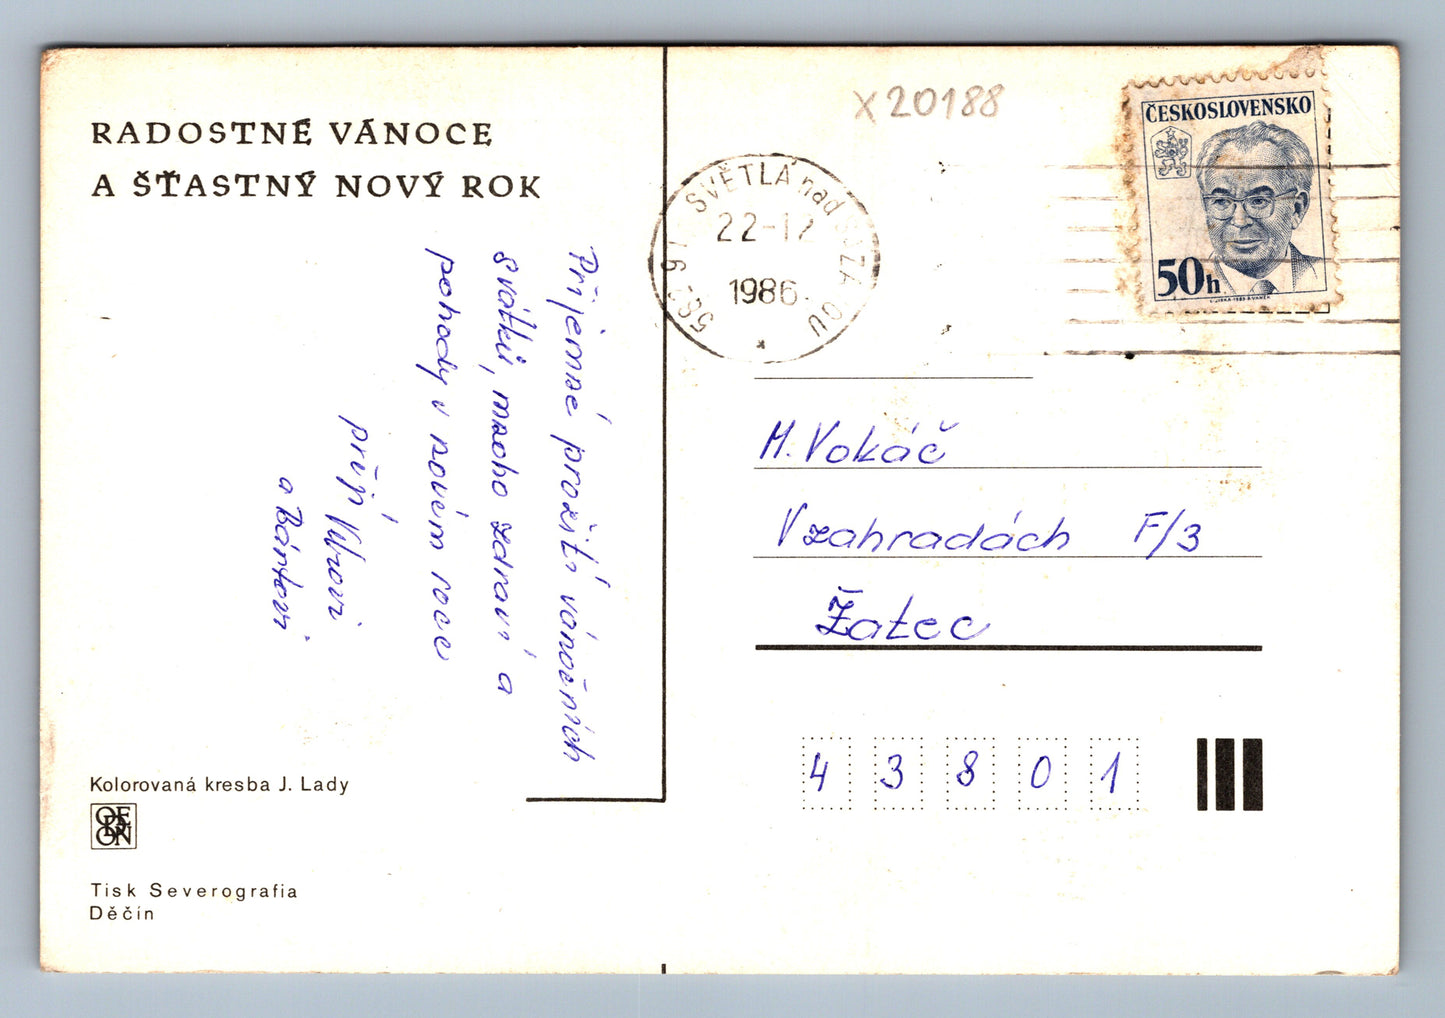 RADOSTNÉ VÁNOCE
A ŠŤASTNÝ NOVÝ ROK
Příjemné prožití vánočních
svátků, mnoho zdraví a
pohody v novém roce
přejí
a
Kolorovaná kresba J. Lady
ODEON
Tisk Severografia
Děčín
X 20188
SVĚTLÁ nad SÁZAVOU
22-12
1986
582 91
ČESKOSLOVENSKO
50h
M. Vokáč
V zahradách F/3
Žatec
4 3 8 0 1